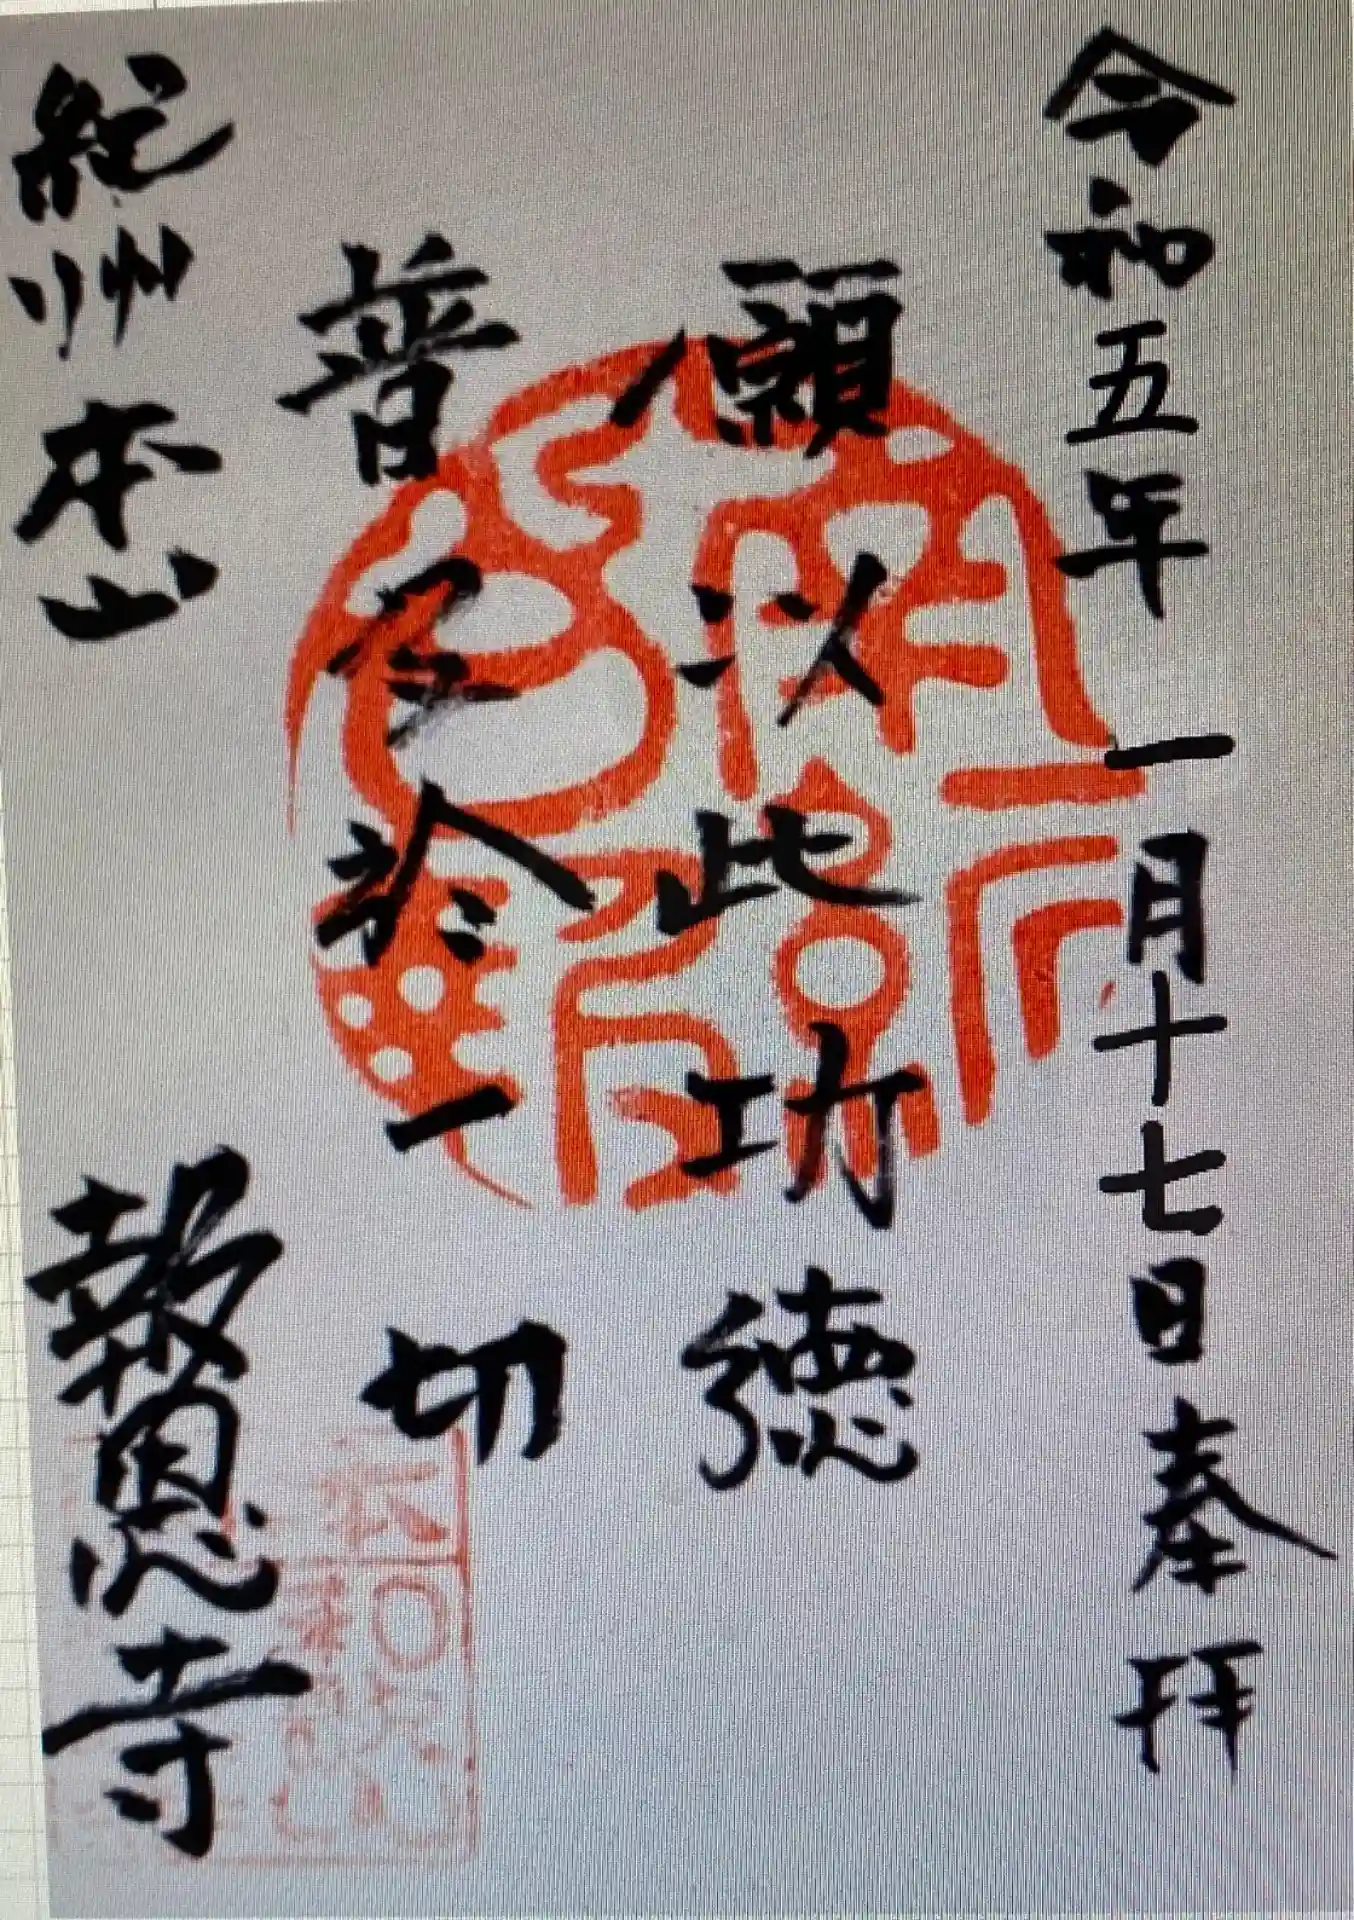 令和五年一月十七日奉拝
願以此功徳
普及於一切
紀州本山
報恩寺